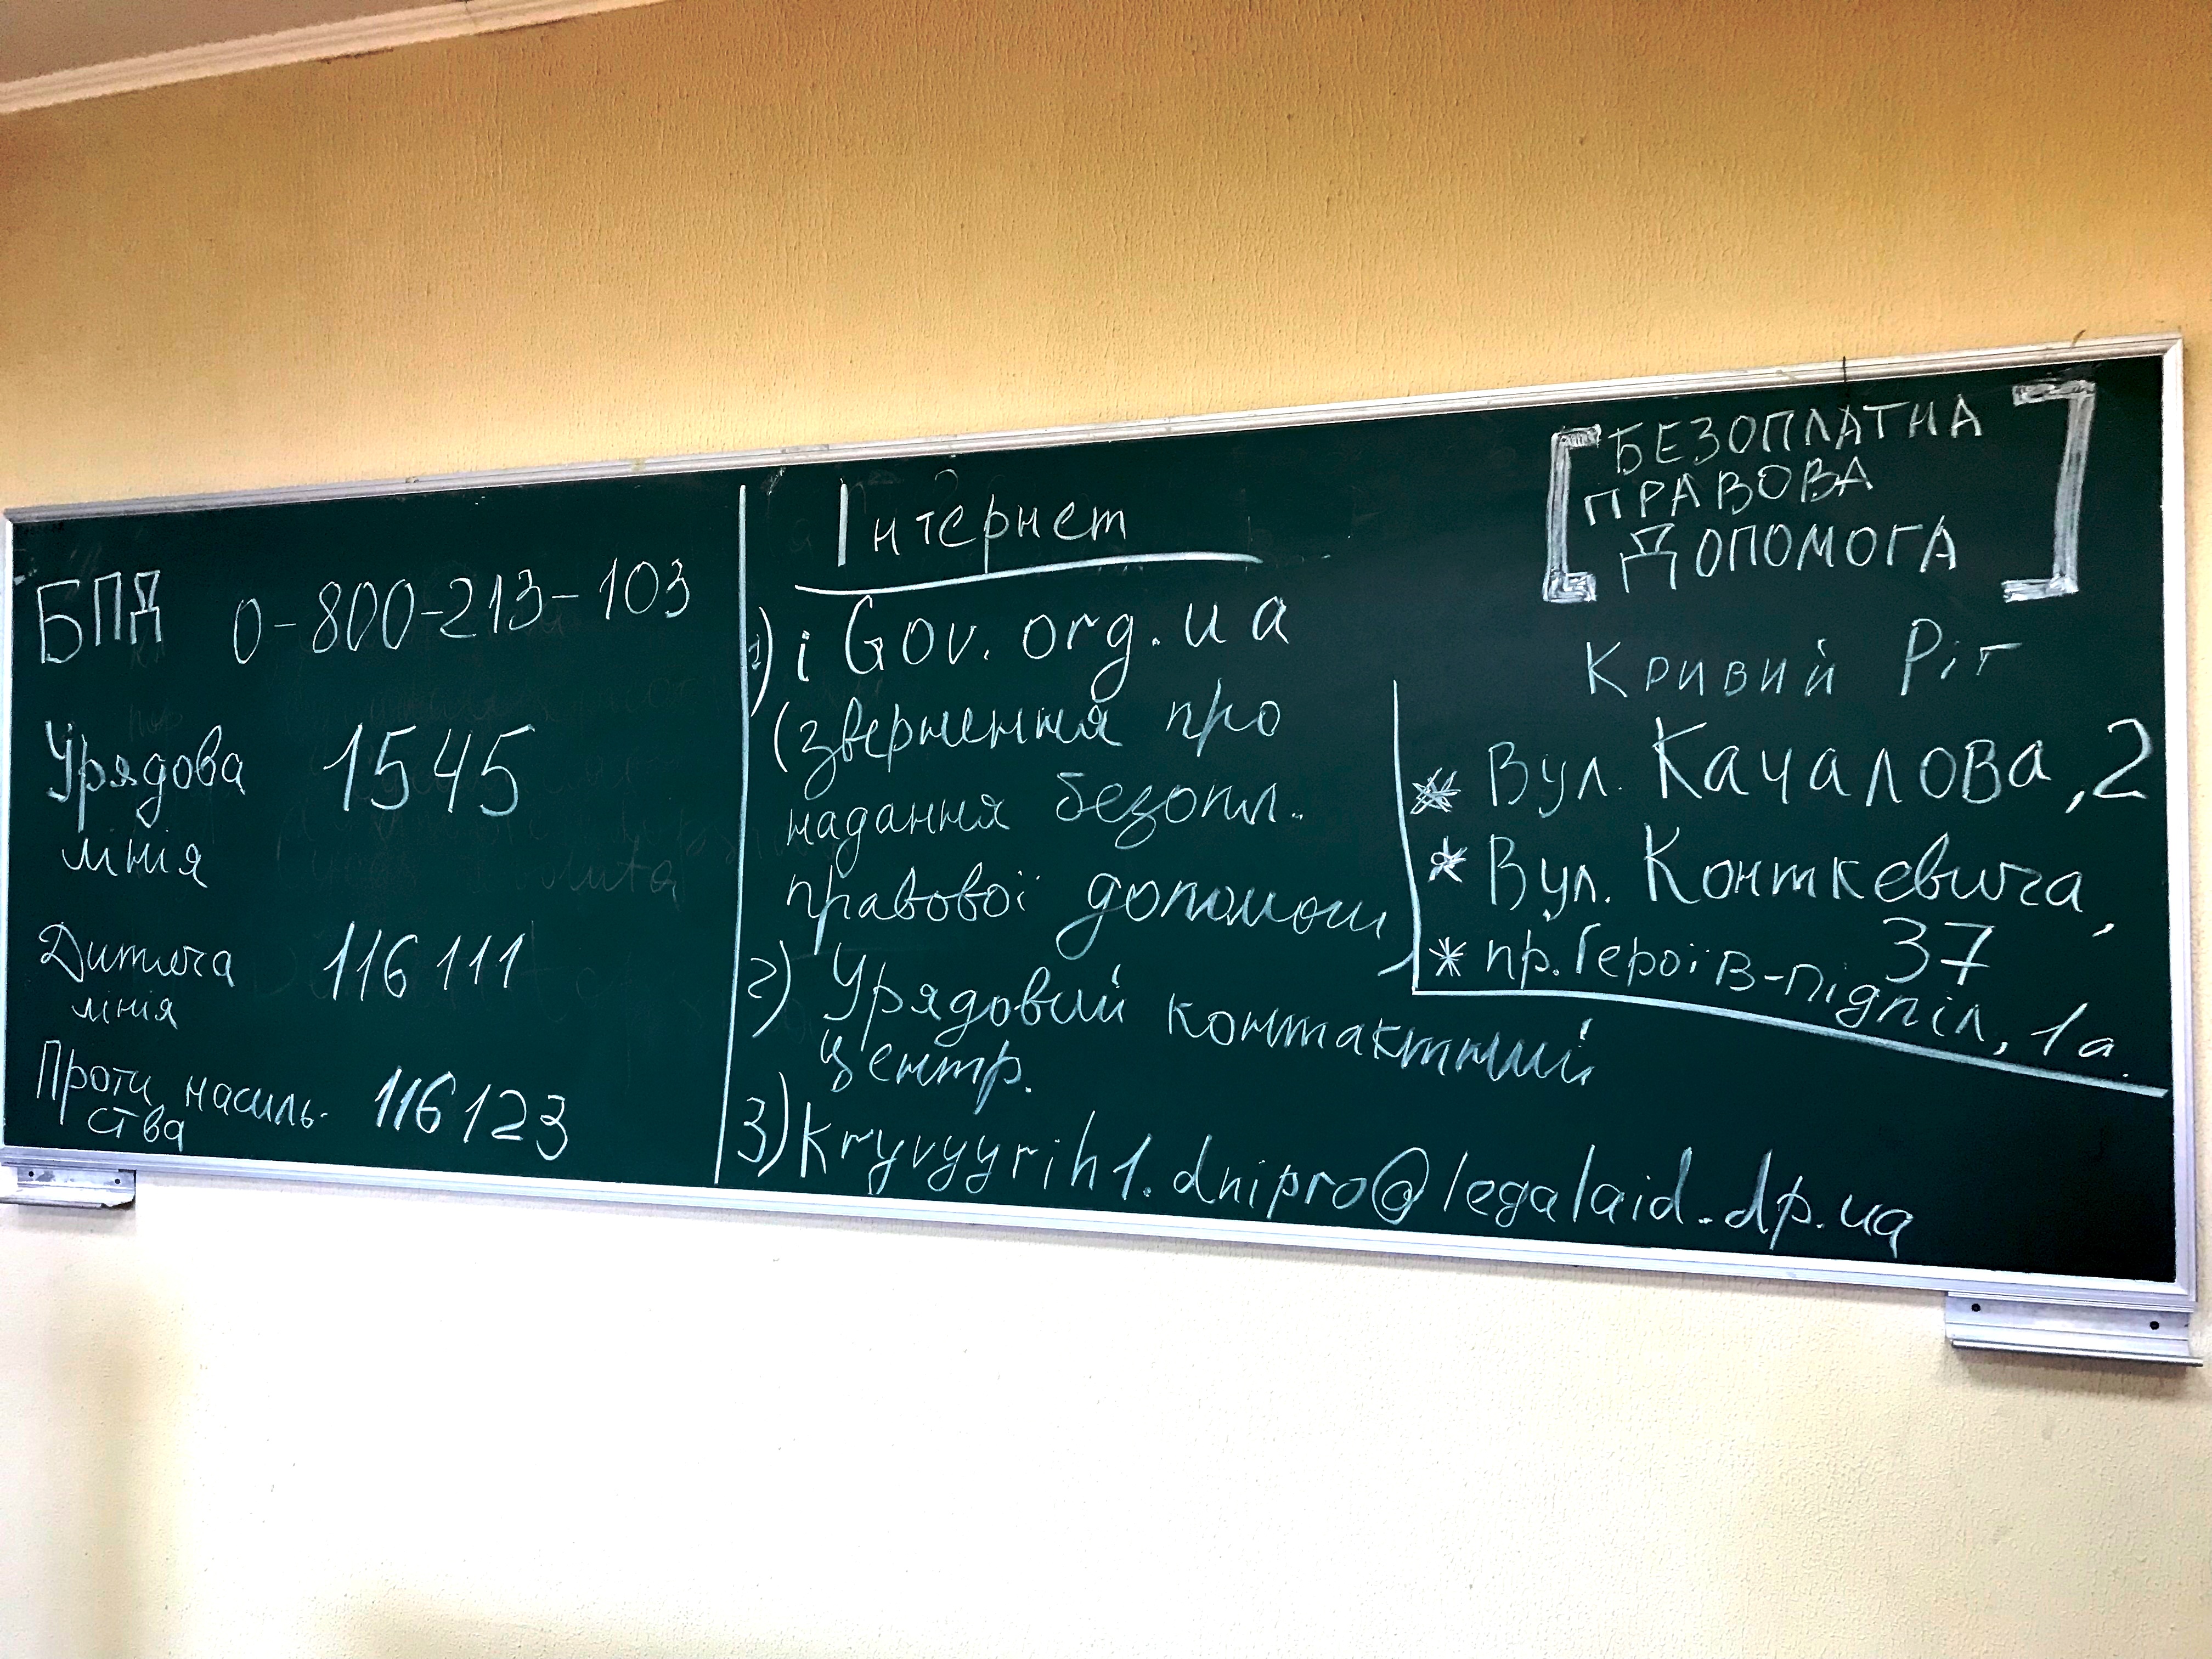 БПД 0-800-213-103
Урядова 1545
лінія
Дитяча 116 111
лінія
Проти насиль- 116 123
ства
Інтернет
1) і Gov. org. ua
(звернення про
надання безопл.
правової допомоги)
2) Урядовий контактний
центр.
3) kryvyyrih1.dnipro@legalaid.dp.ua
[БЕЗОПЛАТНА
ПРАВОВА
ДОПОМОГА]
Кривий Ріг
* Вул. Качалова, 2
* Вул. Конткевича,
37
* пр. Героїв-підпіл, 1а.